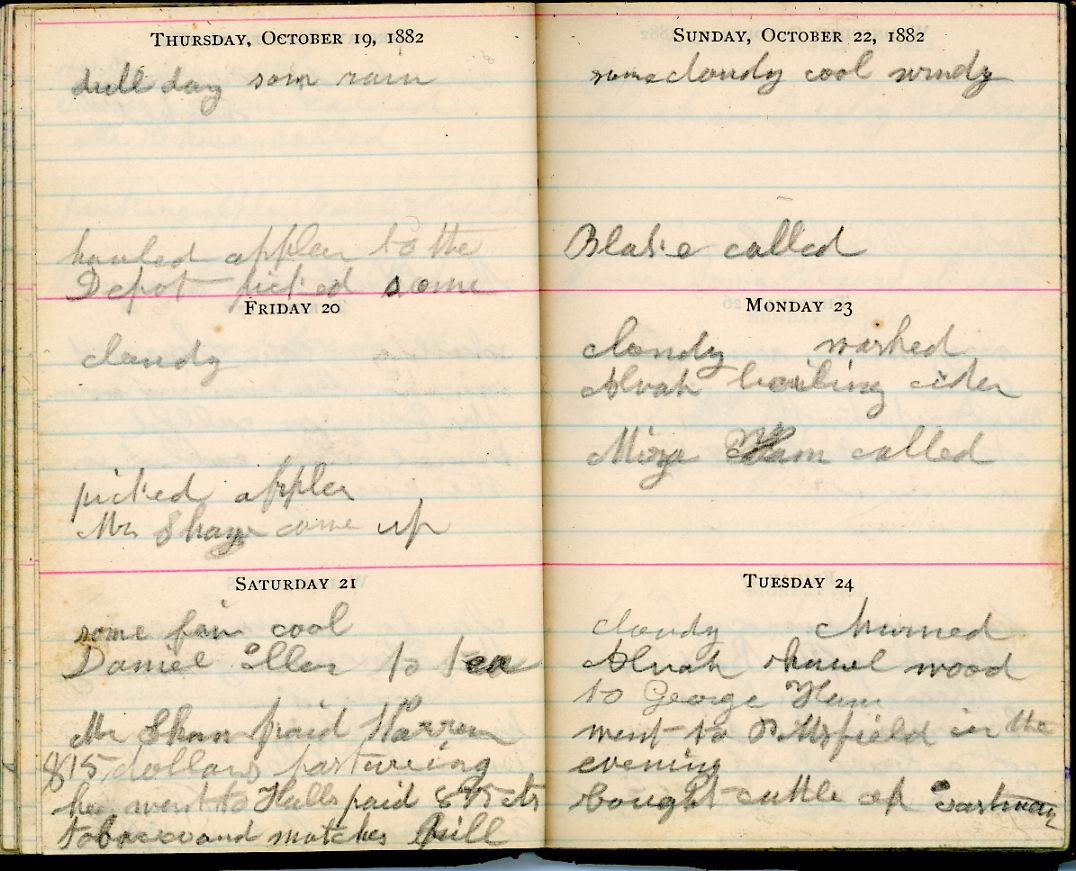 THURSDAY, OCTOBER 19, 1882
dull day som rain
hauled apples to the
Depot picked some
FRIDAY 20
cloudy
picked apples
Mr Shaw come up
SATURDAY 21
some fair cool
Daniel Ellen to tea
Mr Shaw paid Warren
$15 dollars pastureing
he went to Halls paid 875 cts
tobacco and matches bill
SUNDAY, OCTOBER 22, 1882
some cloudy cool windy
Blake called
MONDAY 23
cloudy washed
Alvah boiling cider
Ham called
TUESDAY 24
cloudy churned
Alvah hawl wood
to George Ham
went to Pittsfield in the
evening
bought cattle of Eastman